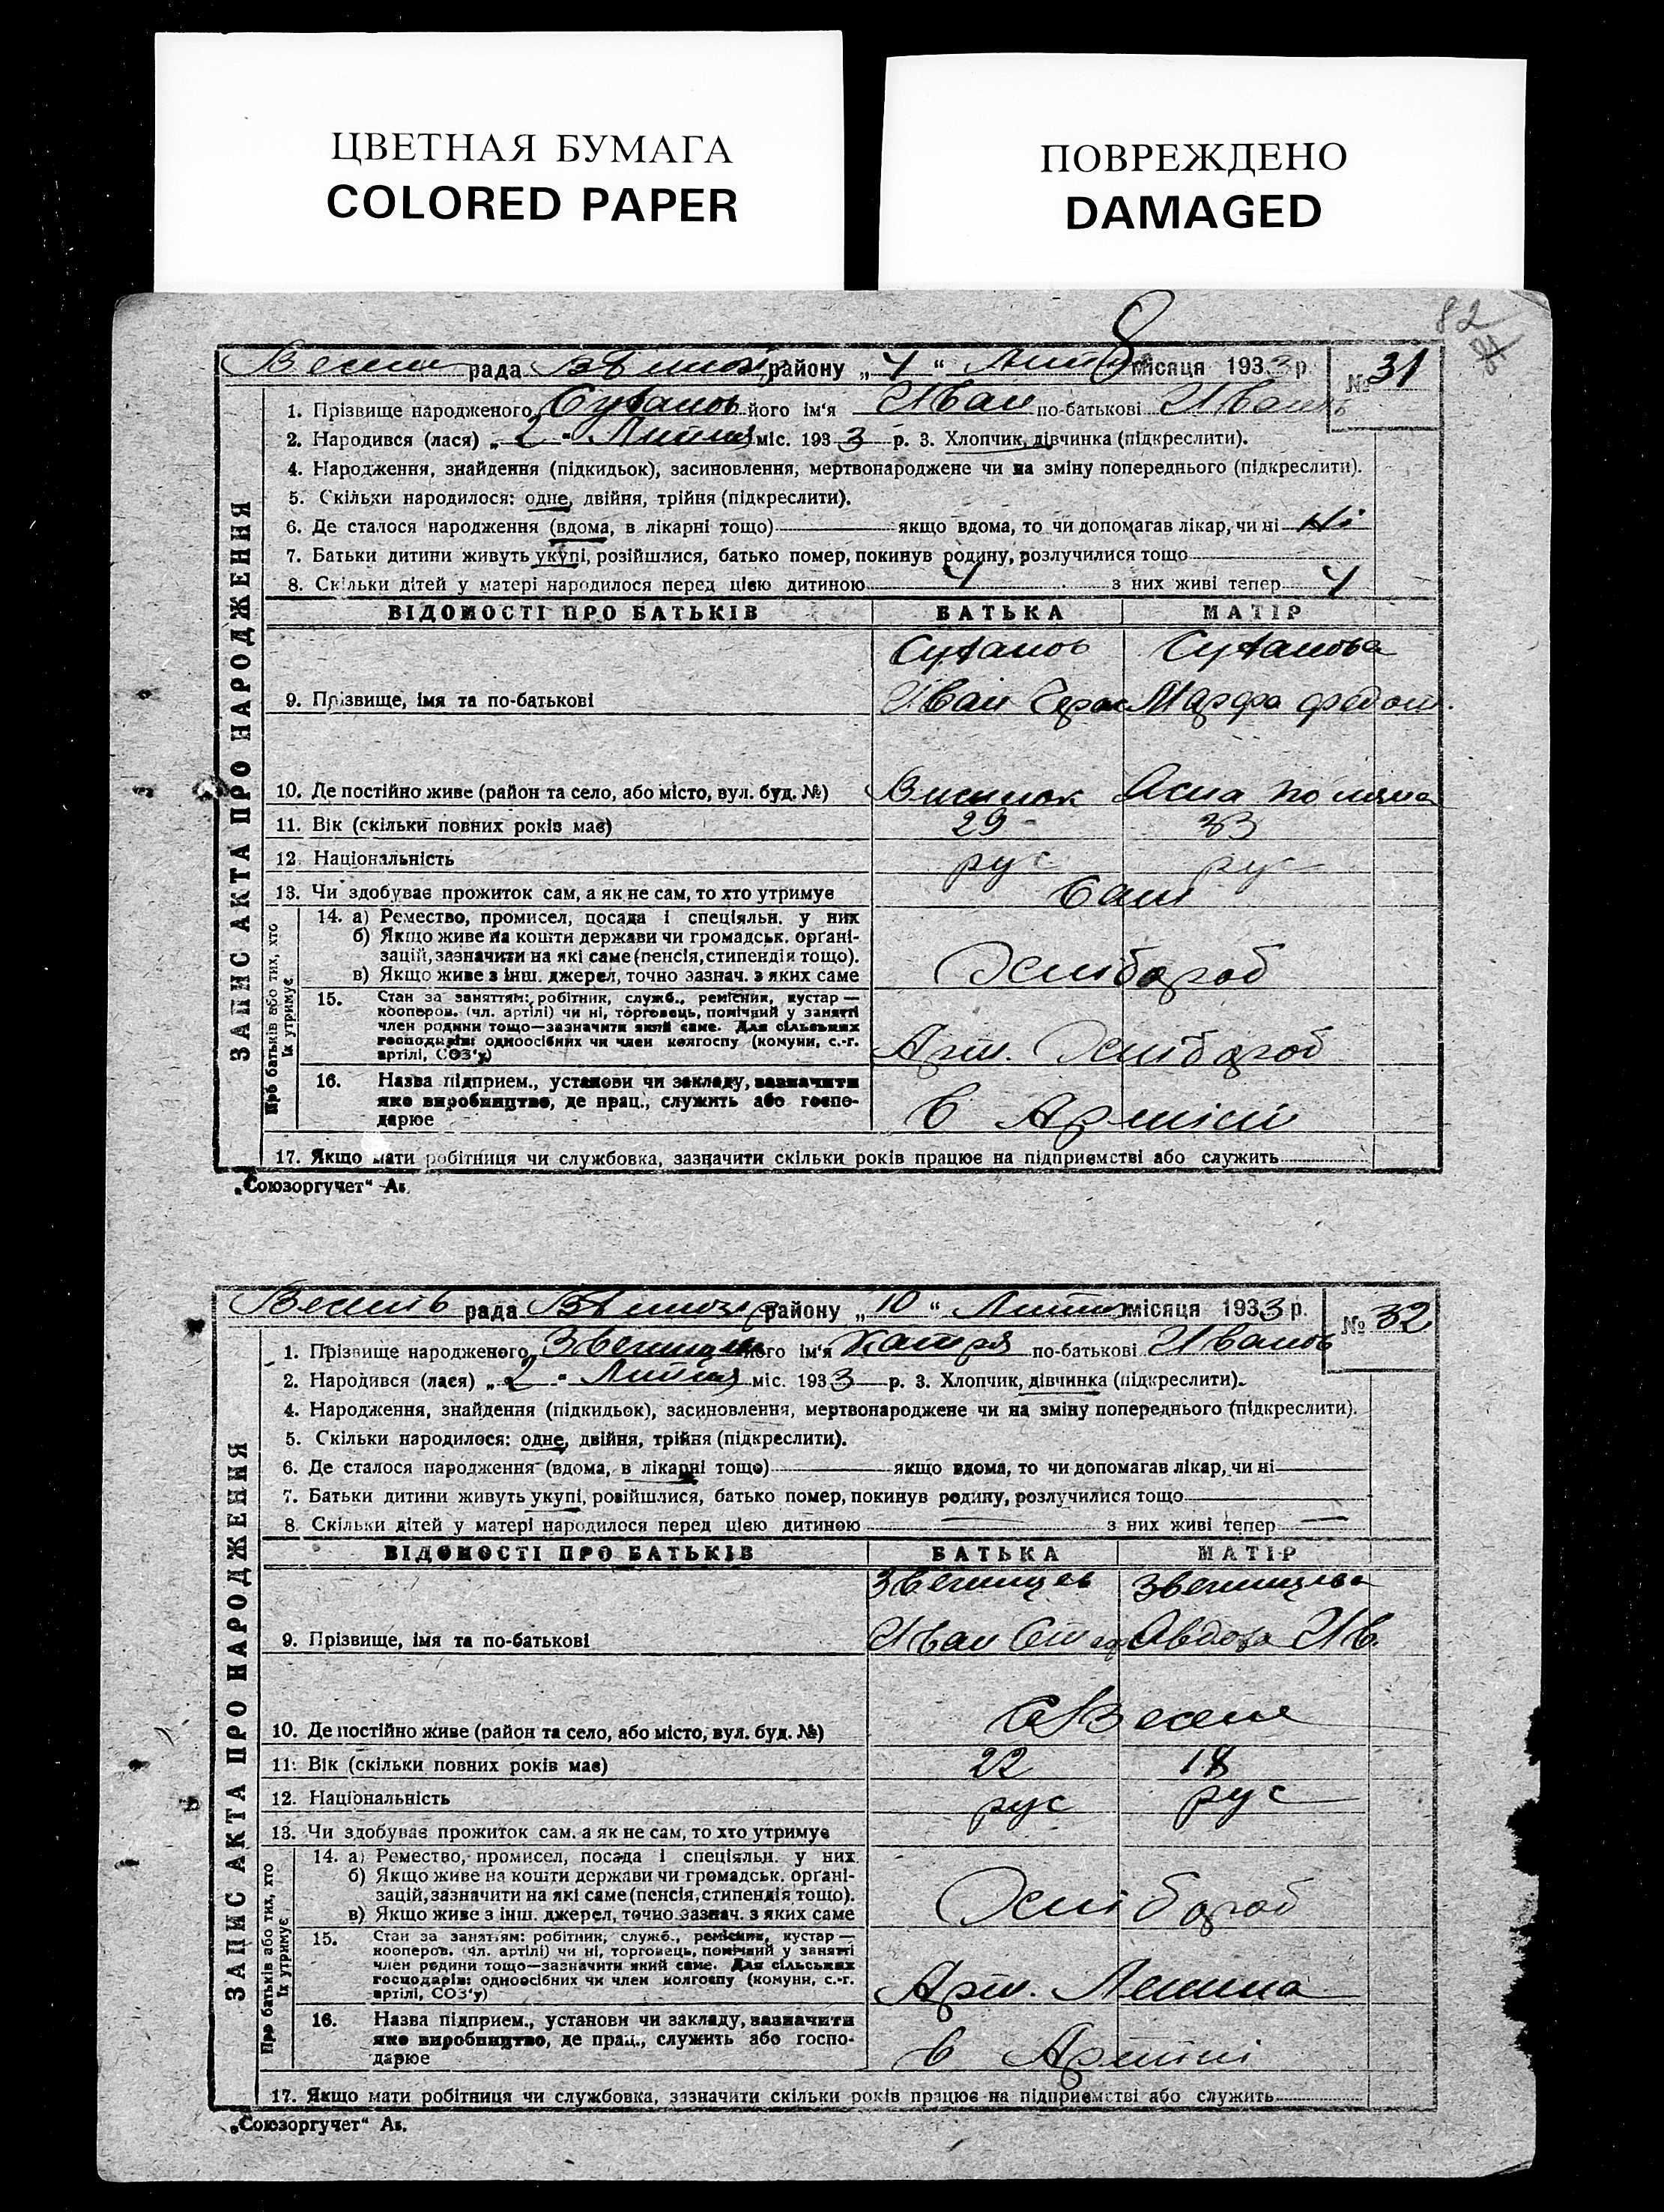 ЦВЕТНАЯ БУМАГА
COLORED PAPER
ПОВРЕЖДЕНО
DAMAGED
82
рада району „4“ місяця 1933 р. № 31
ЗАПИС АКТА ПРО НАРОДЖЕННЯ
1. Прізвище народженого його ім'я Иван по-батькові Иванов
2. Народився (лася) „2“ Липня міс. 1933 р. 3. Хлопчик, дівчинка (підкреслити).
4. Народження, знайдення (підкидьок), засиновлення, мертвонароджене чи на зміну попереднього (підкреслити).
5. Скільки народилося: одне, двійня, трійня (підкреслити).
6. Де сталося народження (вдома, в лікарні тощо) якщо вдома, то чи допомагав лікар, чи ні ні
7. Батьки дитини живуть укупі, розійшлися, батько помер, покинув родину, розлучилися тощо
8. Скільки дітей у матері народилося перед цією дитиною 4 з них живі тепер 4
ВІДОМОСТІ ПРО БАТЬКІВ БАТЬКА МАТІР
9. Прізвище, імя та по-батькові Иван Марфа Федот.
10. Де постійно живе (район та село, або місто, вул. буд. №) Висилок Ясна Поляна
11. Вік (скільки повних років має) 29 33
12. Національність рус рус
13. Чи здобуває прожиток сам, а як не сам, то хто утримує сам
Про батьків або тих, хто їх утримує
14. а) Ремество, промисел, посада і спеціяльн. у них
б) Якщо живе на кошти держави чи громадськ. орґані-
зацій, зазначити на які саме (пенсія, стипендія тощо).
в) Якщо живе з інш. джерел, точно зазнач. з яких саме
15. Стан за заняттям: робітник, служб., ремісник, кустар —
кооперов. (чл. артілі) чи ні, торговець, помічний у занятті
член родини тощо—зазначити який саме. Для сільських
господарів: одноосібник чи член колгоспу (комуни, с.-г.
артілі, СОЗ'у) Арт.
16. Назва підприєм., установи чи закладу, зазначити
яке виробництво, де прац., служить або госпо-
дарює в Артілі
17. Якщо мати робітниця чи службовка, зазначити скільки років працює на підприємстві або служить
„Союзоргучет“
рада району „10“ Липня місяця 1933 р. № 32
ЗАПИС АКТА ПРО НАРОДЖЕННЯ
1. Прізвище народженого його ім'я Катря по-батькові Иванов
2. Народився (лася) „2“ Липня міс. 1933 р. 3. Хлопчик, дівчинка (підкреслити).
4. Народження, знайдення (підкидьок), засиновлення, мертвонароджене чи на зміну попереднього (підкреслити).
5. Скільки народилося: одне, двійня, трійня (підкреслити).
6. Де сталося народження (вдома, в лікарні тощо) якщо вдома, то чи допомагав лікар, чи ні
7. Батьки дитини живуть укупі, розійшлися, батько помер, покинув родину, розлучилися тощо
8. Скільки дітей у матері народилося перед цією дитиною — з них живі тепер —
ВІДОМОСТІ ПРО БАТЬКІВ БАТЬКА МАТІР
Звегинцев Звегинцева
9. Прізвище, імя та по-батькові Иван Ив.
10. Де постійно живе (район та село, або місто, вул. буд. №)
11. Вік (скільки повних років має) 22 18
12. Національність рус рус
13. Чи здобуває прожиток сам, а як не сам, то хто утримує
Про батьків або тих, хто їх утримує
14. а) Ремество, промисел, посада і спеціяльн. у них
б) Якщо живе на кошти держави чи громадськ. орґані-
зацій, зазначити на які саме (пенсія, стипендія тощо).
в) Якщо живе з інш. джерел, точно зазнач. з яких саме
15. Стан за заняттям: робітник, служб., ремісник, кустар —
кооперов. (чл. артілі) чи ні, торговець, помічний у занятті
член родини тощо—зазначити який саме. Для сільських
господарів: одноосібник чи член колгоспу (комуни, с.-г.
артілі, СОЗ'у) Арт. Ленина
16. Назва підприєм., установи чи закладу, зазначити
яке виробництво, де прац., служить або госпо-
дарює в Артілі
17. Якщо мати робітниця чи службовка, зазначити скільки років працює на підприємстві або служить
„Союзоргучет“